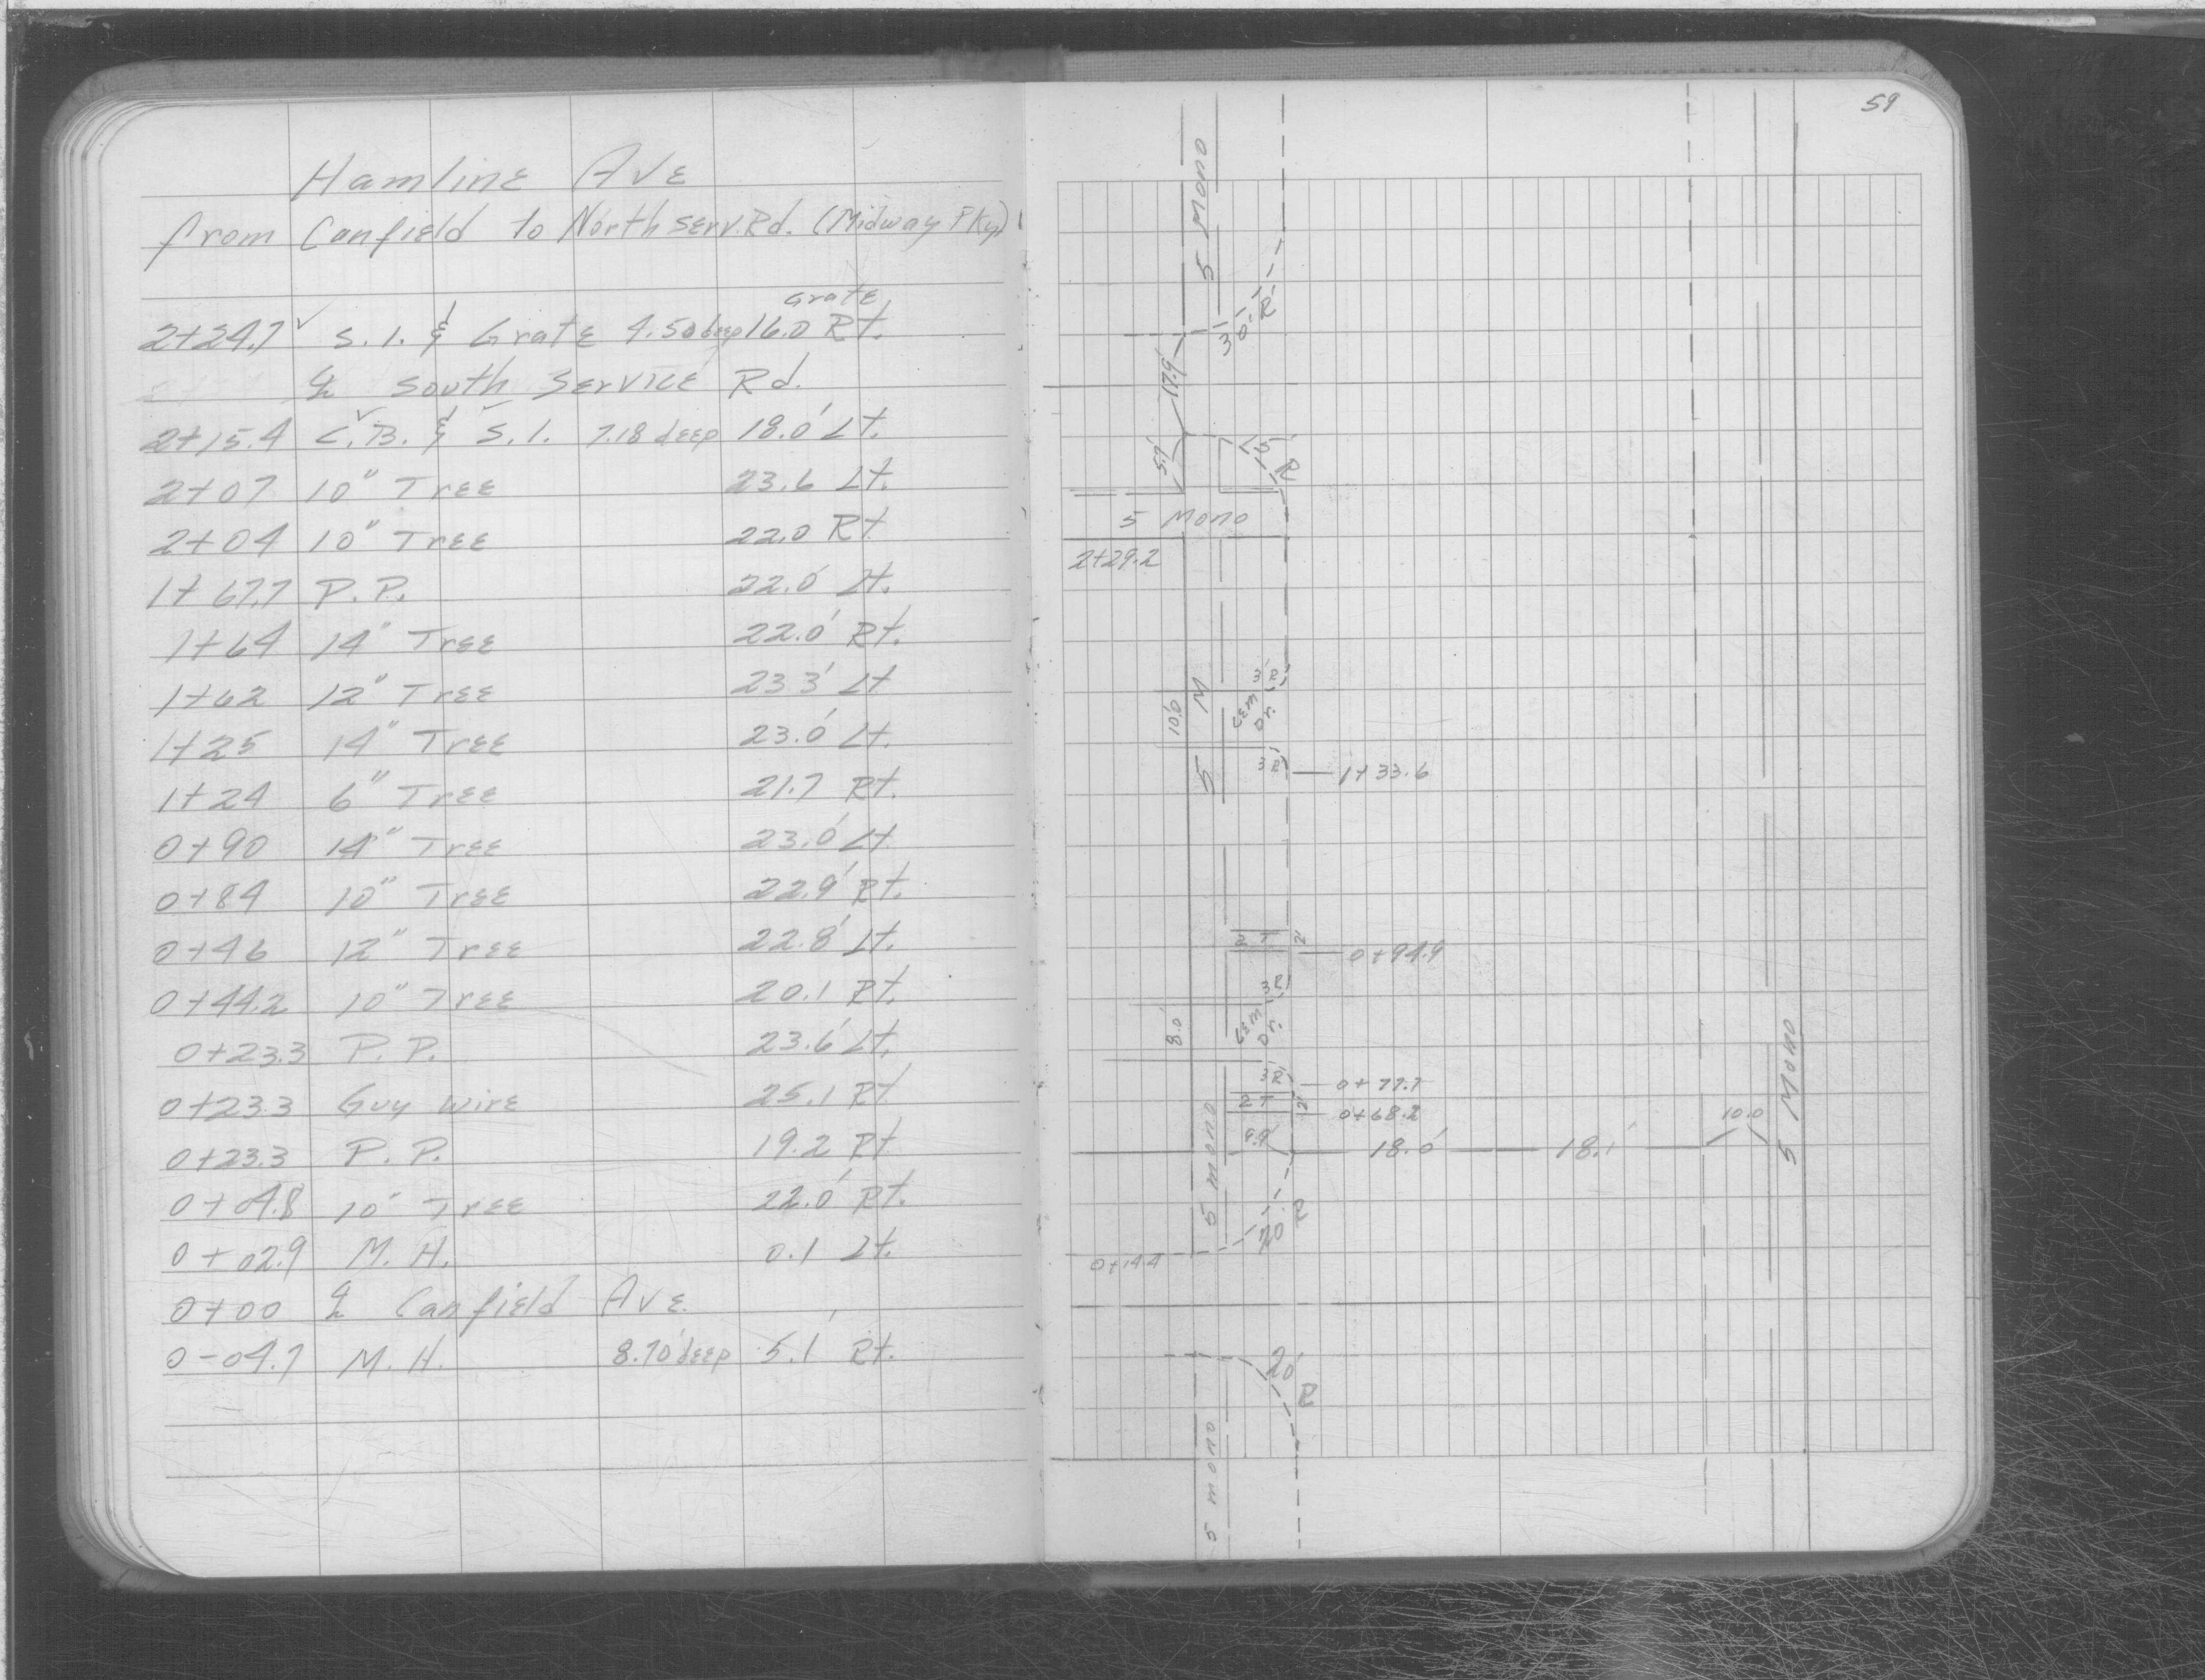 Hamline Ave
from Canfield to North Serv. Rd. (Midway Pky)
Grate
2+24.7 ✓ S.I. & Grate 4.50 deep 16.0 Rt.
℄ South Service Rd.
2+15.4 C.B. & S.I. 7.18 deep 18.0' Lt.
2+07 10" Tree 23.6 Lt.
2+04 10" Tree 22.0 Rt
1+67.7 P.P. 22.0' Lt.
1+64 14" Tree 22.0' Rt.
1+62 12" Tree 23.3' Lt
1+25 14" Tree 23.0' Lt.
1+24 6" Tree 21.7 Rt.
0+90 14" Tree 23.0' Lt
0+84 10" Tree 22.9' Rt.
0+46 12" Tree 22.8' Lt.
0+44.2 10" Tree 20.1 Rt.
0+23.3 P.P. 23.6' Lt.
0+23.3 Guy Wire 25.1 Rt
0+23.3 P.P. 19.2 Rt
0+04.8 10" Tree 22.0' Rt.
0+02.9 M.H. 0.1 Lt.
0+00 ℄ Canfield Ave.
0-04.7 M.H. 8.70' deep 5.1' Rt.
59
5 Mono
30' R
17.9'
5.1'
15' R
5 Mono
2+29.2
3' R
10.0'
5 M
Cem Dr.
3 R
1+33.6
2 T 2'
0+94.9
3 R
8.0'
Cem Dr.
3 R
0+77.7
2 T 2'
0+68.2
5 Mono
10.0
9.9'
18.0'
18.1'
5 mono
20 R
0+14.4
20' R
5 mono